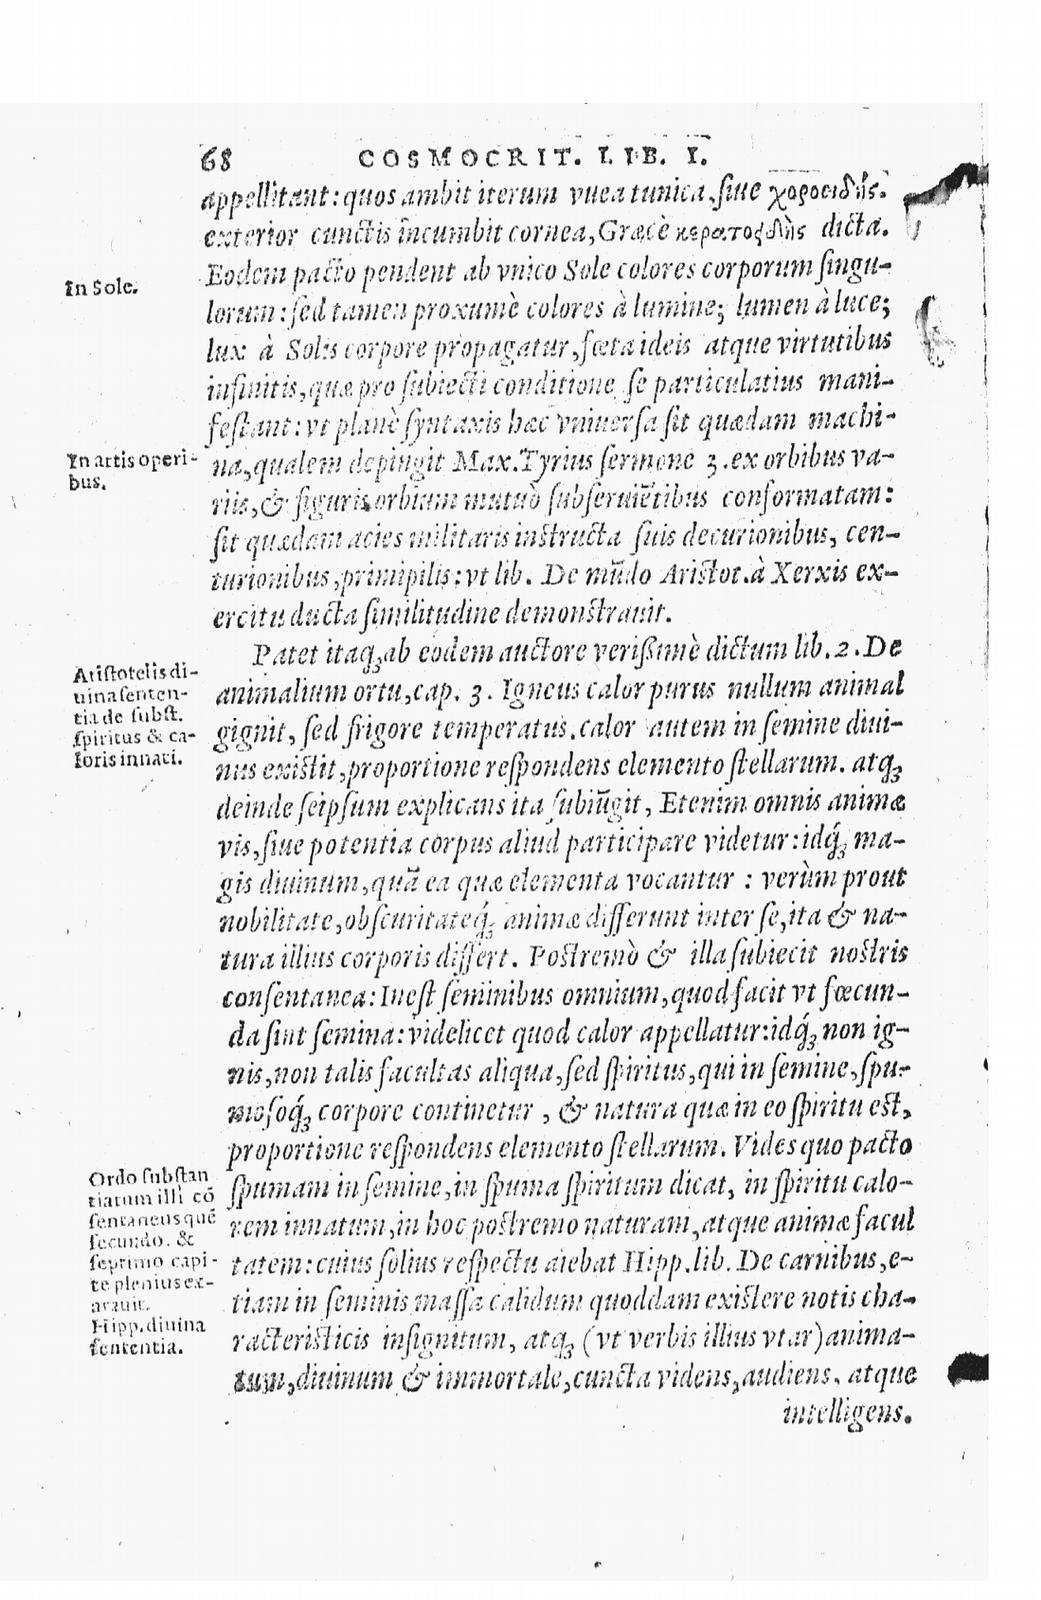 68 COSMOCRIT. LIB. I.
appellitant: quos ambit iterum vuea tunica, ſiue χοροειδής.
exterior cunctis incumbit cornea, Græcè κερατοειδὴς dicta.
In Sole.
Eodem pacto pendent ab vnico Sole colores corporum ſingu-
lorum: ſed tamen proxumè colores à lumine; lumen à luce;
lux à Solis corpore propagatur, fœta ideis atque virtutibus
infinitis, quæ pro ſubiecti conditione ſe particulatius mani-
feſtant: vt planè ſyntaxis hæc vniuerſa ſit quædam machi-
In artis operi-
bus.
na, qualem depingit Max. Tyrius ſermone 3. ex orbibus va-
riis, & figuris orbium mutuò ſubſeruiẽtibus conformatam:
ſit quædam acies militaris inſtructa ſuis decurionibus, cen-
turionibus, primipilis: vt lib. De mũdo Ariſtot. à Xerxis ex-
ercitu ducta ſimilitudine demonſtrauit.
Ariſtotelis di-
uina ſenten-
tia de ſubſt.
ſpiritus & ca-
loris innati.
Patet itaqꝫ ab eodem auctore verißimè dictum lib. 2. De
animalium ortu, cap. 3. Igneus calor purus nullum animal
gignit, ſed frigore temperatus. calor autem in ſemine diui-
nus exiſtit, proportione reſpondens elemento ſtellarum. atqꝫ
deinde ſeipſum explicans ita ſubiũgit, Etenim omnis animæ
vis, ſiue potentia corpus aliud participare videtur: idq́ꝫ ma-
gis diuinum, quã ea quæ elementa vocantur : verùm prout
nobilitate, obſcuritateq́ꝫ animæ differunt inter ſe, ita & na-
tura illius corporis differt. Poſtremò & illa ſubiecit noſtris
conſentanea: Ineſt ſeminibus omnium, quod facit vt fœcun-
da ſint ſemina: videlicet quod calor appellatur: idq́ꝫ non ig-
nis, non talis facultas aliqua, ſed ſpiritus, qui in ſemine, ſpu-
moſoq́ꝫ corpore continetur , & natura quæ in eo ſpiritu eſt,
proportione reſpondens elemento ſtellarum. Vides quo pacto
Ordo ſubſtan
tiarum illi cõ
ſentaneus quẽ
ſecundo. &
ſeptimo capi-
te plenius ex-
arauit.
Hipp. diuina
ſententia.
ſpumam in ſemine, in ſpuma ſpiritum dicat, in ſpiritu calo-
rem innatum, in hoc poſtremo naturam, atque animæ facul
tatem: cuius ſolius reſpectu aiebat Hipp. lib. De carnibus, e-
tiam in ſeminis maſſa calidum quoddam exiſtere notis cha-
racteriſticis inſignitum, atqꝫ (vt verbis illius vtar) anima-
tum, diuinum & immortale, cuncta videns, audiens, atque
intelligens.